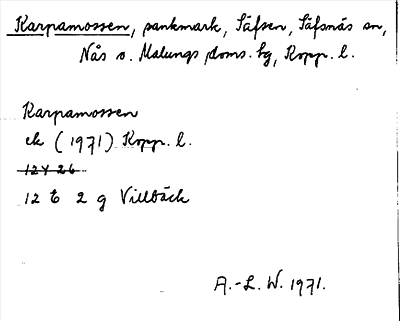 Karpamossen, sankmark, Säfsen, Säfsnäs sn,
Nås o. Malungs doms. hg, Kopp. l.
Karpamossen
ek (1971) Kopp. l.
12 Y 26
12 E 2 g Villbäck
A.-L. W. 1971.